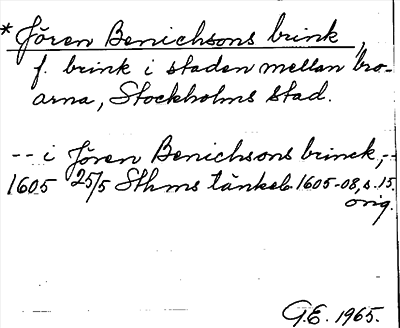 * Jören Benichsons brink,
f. brink i staden mellan bro-
arna, Stockholms stad.
-- i Jören Benichsons brinck, --
1605 25/5 Sthms tänkeb. 1605-08, s. 15.
orig.
G.E. 1965.